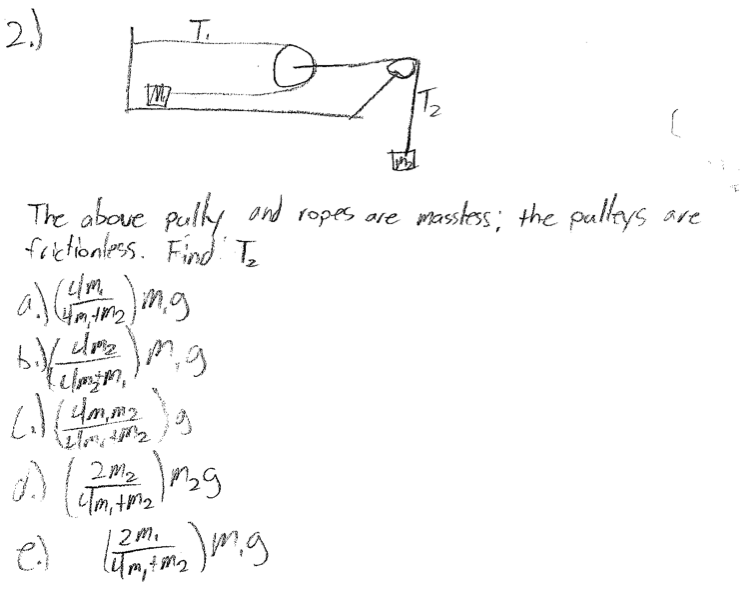 2.)
T₁
m
T₂
m₂
The above pully and ropes are massless; the pulleys are
frictionless. Find: T₂
a.) (4m₁ / 4m₁+m₂) m₁g
b.) (4m₂ / 4m₂+m₁) m₁g
c.) (4m₁m₂ / 4m₁+m₂) g
d.) (2m₂ / 4m₁+m₂) m₂g
e.) (2m₁ / 4m₁+m₂) m₁g